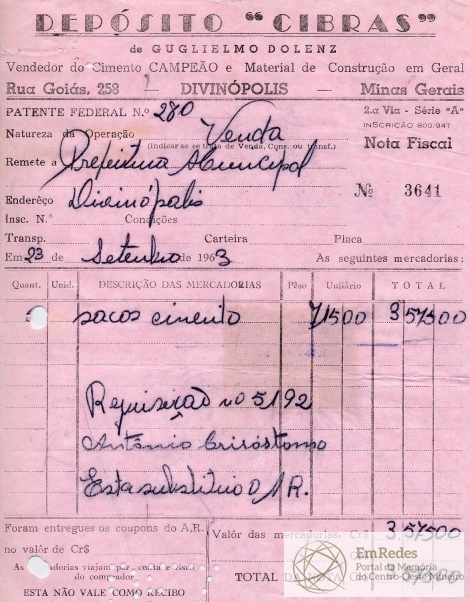 DEPÓSITO "CIBRAS"
de GUGLIELMO DOLENZ
Vendedor do Cimento CAMPEÃO e Material de Construção em Geral
Rua Goiás, 258 — DIVINÓPOLIS — Minas Gerais
PATENTE FEDERAL N.º 280
2.a Via - Série "A"
INSCRIÇÃO 800/947
Natureza da Operação Venda
(Indicar se se trata de Venda, Cons. ou transf.)
Nota Fiscal
Remete a Prefeitura Municipal
Nº 3641
Endereço Divinópolis
Insc. N.º Condições
Transp. Carteira Placa
Em 23 de Setembro de 1963 As seguintes mercadorias:
Quant. Unid. DESCRIÇÃO DAS MERCADORIAS Pêso Unitário TOTAL
sacos cimento 71500 357500
Requisição no 5192
Antônio Crisóstomo
Esta substitui o A R.
Foram entregues os coupons do A,R.
no valor de Cr$
Valor das mercadorias. Cr$ 357500
As mercadorias viajam por conta e risco
do comprador
TOTAL DA NOTA
ESTA NÃO VALE COMO RECIBO
EmRedes
Portal da Memória
do Centro-Oeste Mineiro